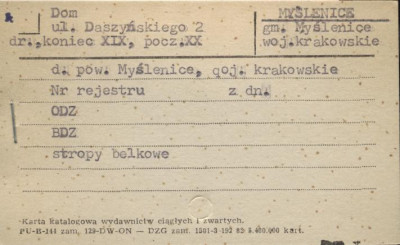 Dom MYŚLENICE
ul. Daszyńskiego 2 gm. Myślenice
dr.,koniec XIX, pocz.XX woj.krakowskie
d. pow. Myślenice, qoj. krakowskie
Nr rejestru z dn.
ODZ
BDZ
stropy belkowe
Karta katalogowa wydawnictw ciągłych i zwartych.
PU-B-141 zam, 129-DW-ON — DZG zam. 1501-3-193 82 5.400.000 kart.